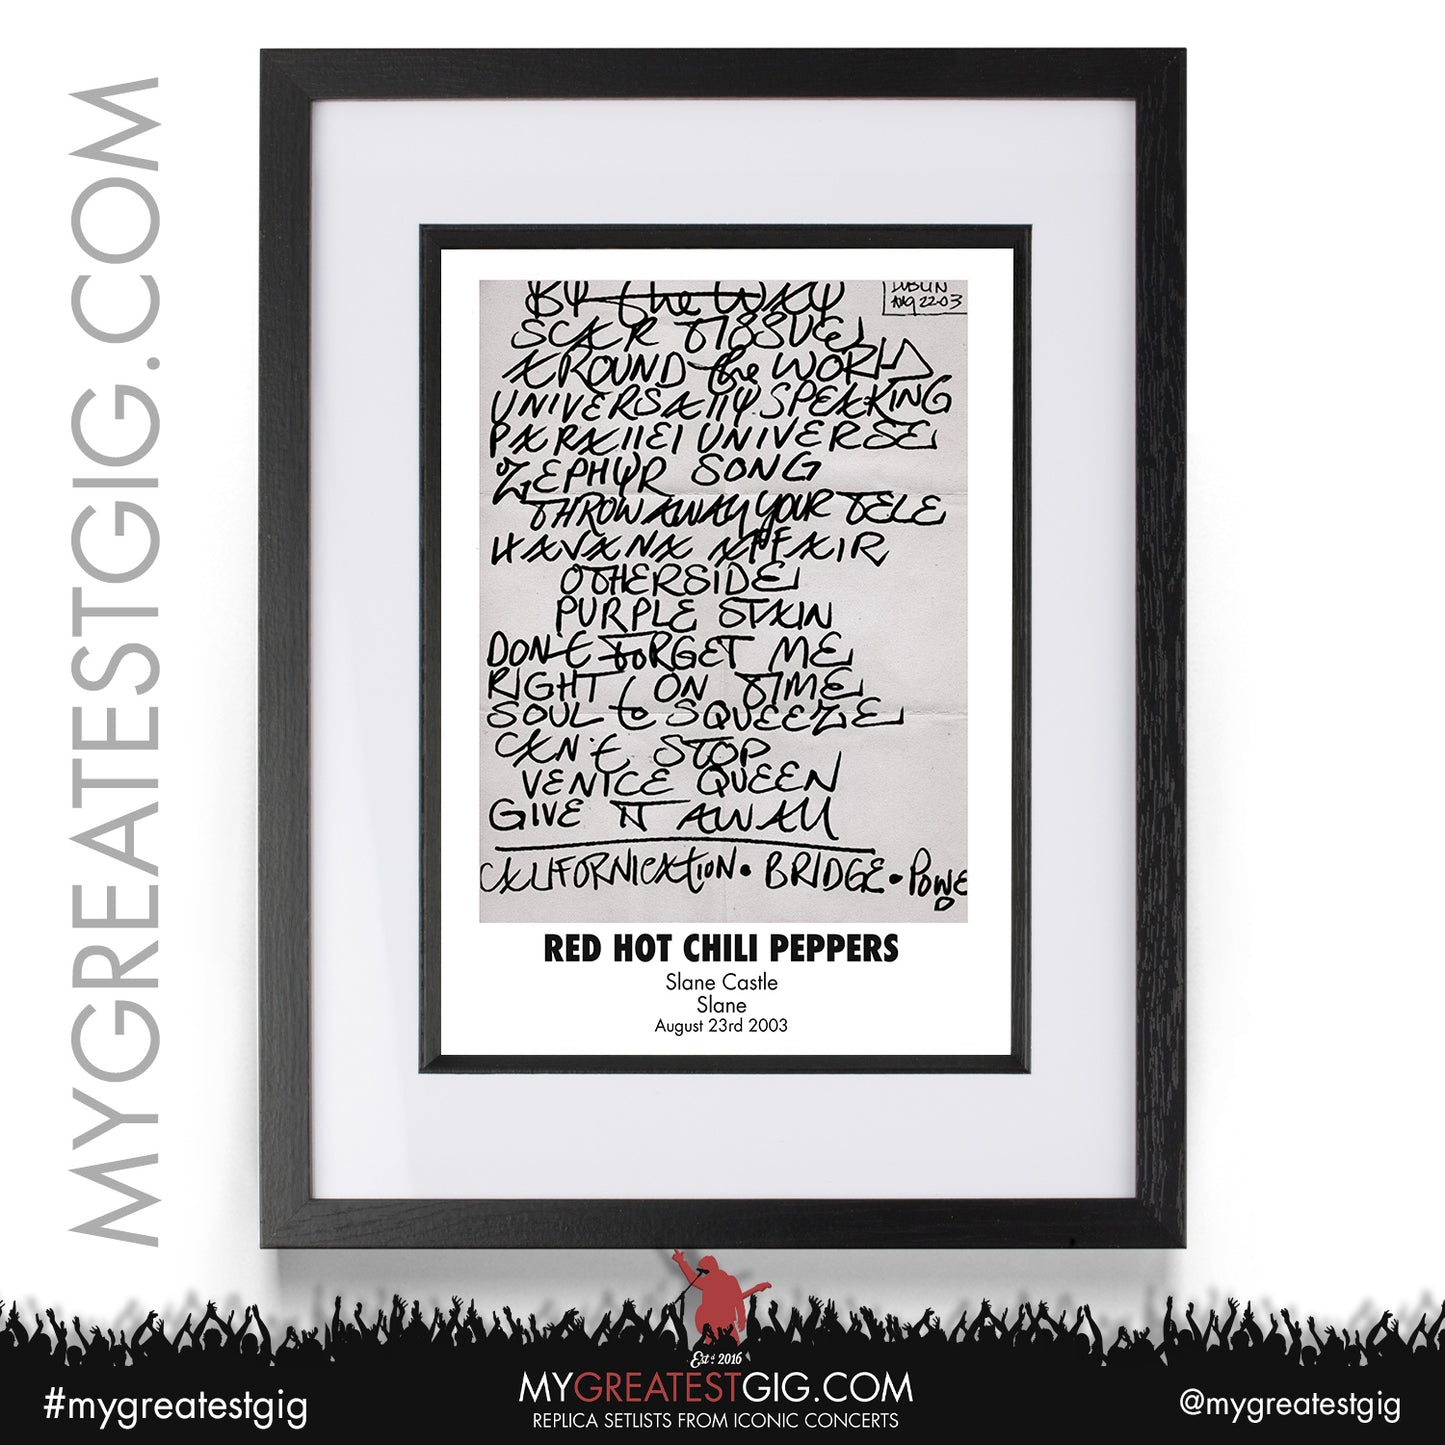 MYGREATESTGIG.COM
BY the WAY
DUBLIN
AUG 22 03
SCAR TISSUE
AROUND the WORLD
UNIVERSAllY SPEAKING
PARAllEl UNIVERSE
ZEPHYR SONG
THROW AWAY YOUR TELE
HAVANA AFFAIR
OTHERSIDE
PURPLE STAIN
DON'T FORGET ME
RIGHT ON TIME
SOUL to SQUEEZE
CAN'T STOP
VENICE QUEEN
GIVE IT AWAY
CALIFORNICATION • BRIDGE • POWE
RED HOT CHILI PEPPERS
Slane Castle
Slane
August 23rd 2003
Est d 2016
MYGREATESTGIG.COM
REPLICA SETLISTS FROM ICONIC CONCERTS
#mygreatestgig
@mygreatestgig